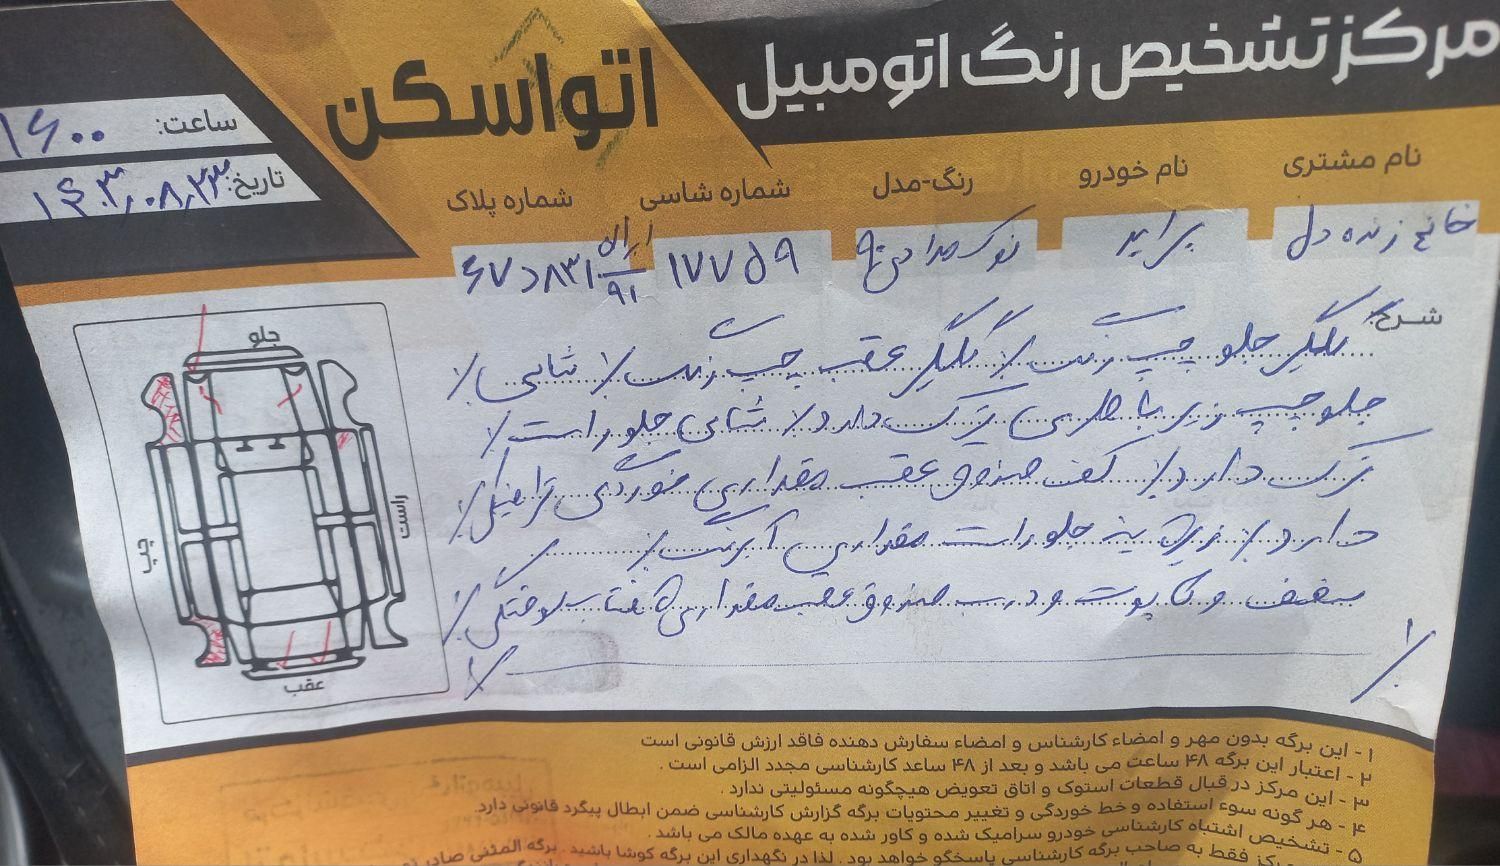 مرکز تشخیص رنگ اتومبیل
اتواسکن
ساعت: ۱۶۰۰
تاریخ: ۱۴۰۳,۰۸,۲۳
نام مشتری
نام خودرو
رنگ-مدل
شماره شاسی
شماره پلاک
خانم زنده دل
پراید
نوک مدادی ۹۰
۱۷۷۵۹
۶۷د۸۳۱ ایران ۹۱
شرح:
گلگیر جلو چپ رنگ٪ گلگیر عقب چپ رنگ٪ شاسی٪
جلو چپ زیر باطری ترک دارد٪ شاسی جلو راست٪
ترک دارد٪ کف صندوق عقب مقداری خوردگی
دارد٪ زیر جلو راست مقداری آبرنگ٪
سقف و کاپوت و درب صندوق عقب مقداری آفتاب سوختگی٪
جلو
راست
چپ
عقب
۱ - این برگه بدون مهر و امضاء کارشناس و امضاء سفارش دهنده فاقد ارزش قانونی است
۲ - اعتبار این برگه ۴۸ ساعت می باشد و بعد از ۴۸ ساعد کارشناسی مجدد الزامی است .
۳ - این مرکز در قبال قطعات استوک و اتاق تعویض هیچگونه مسئولیتی ندارد .
۴ - هر گونه سوء استفاده و خط خوردگی و تغییر محتویات برگه گزارش کارشناسی ضمن ابطال پیگرد قانونی دارد.
۵ - تشخیص اشتباه کارشناسی خودرو سرامیک شده و کاور شده به عهده مالک می باشد .
مرکز فقط به صاحب برگه کارشناسی پاسخگو خواهد بود . لذا در نگهداری این برگه کوشا باشید . برگه المثنی صادر